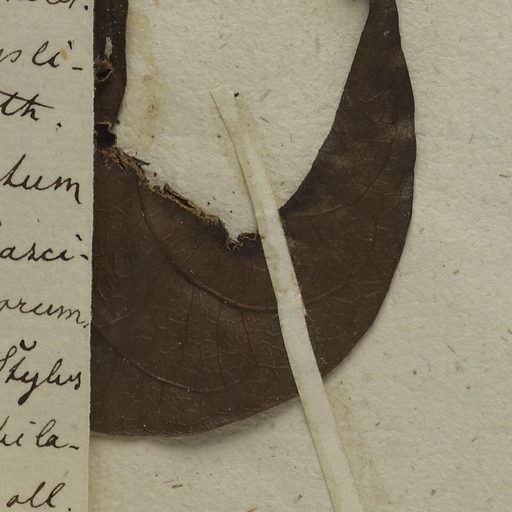 sli-
th.
tum
asci-
orum,
Stylus
ila-
oll.